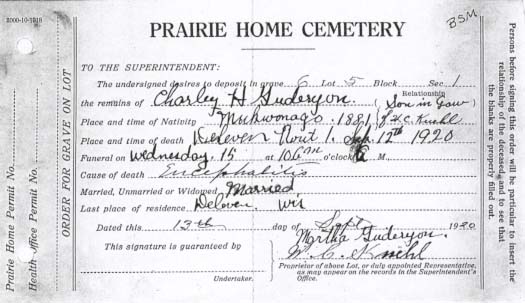 2000-10-1918
BSM
PRAIRIE HOME CEMETERY
TO THE SUPERINTENDENT:
The undersigned desires to deposit in grave 6 Lot 5 Block Sec. 1
the remains of Charley H Guderyon. Relationship (Son in Law
Place and time of Nativity Mukwonago 1881 of H.C. Kuehl
Place and time of death Delevan Rout 1. Sep. 12th 1920
Funeral on Wednesday, 15 at 10 o'clock M.,
Cause of death Encephalitis
Married, Unmarried or Widowed Married
Last place of residence Delavan Wis
Dated this 13th day of Sept 1920
Martha Guderyon.
This signature is guaranteed by Kuehl
Undertaker.
Proprietor of above Lot, or duly appointed Representative,
as may appear on the records in the Superintendent's
Office.
Prairie Home Permit No.
Health Office Permit No.
ORDER FOR GRAVE ON LOT
Persons before signing this order will be particular to insert the
relationship of the deceased, and to see that
the blanks are properly filled out.